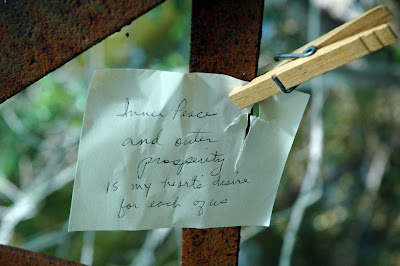 Inner Peace
and outer
prosperity
Is my heart's desire
for each of us